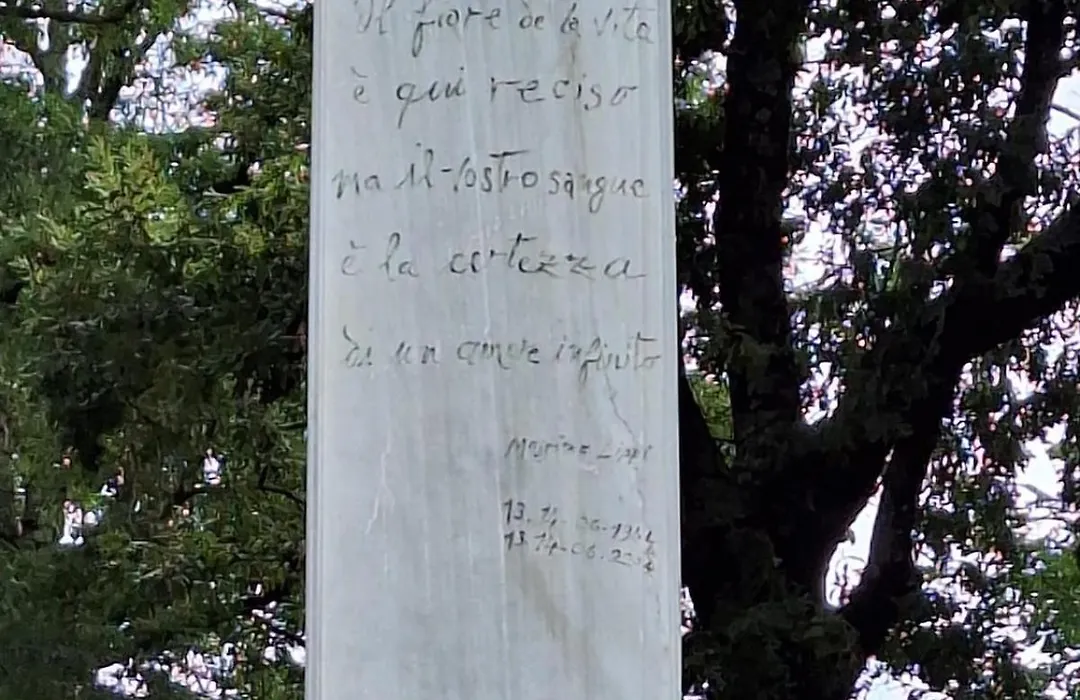 Il fiore de la vita
è qui reciso
ma il vostro sangue
è la certezza
di un amore infinito
13.14-06-1944
13.14-06.2004